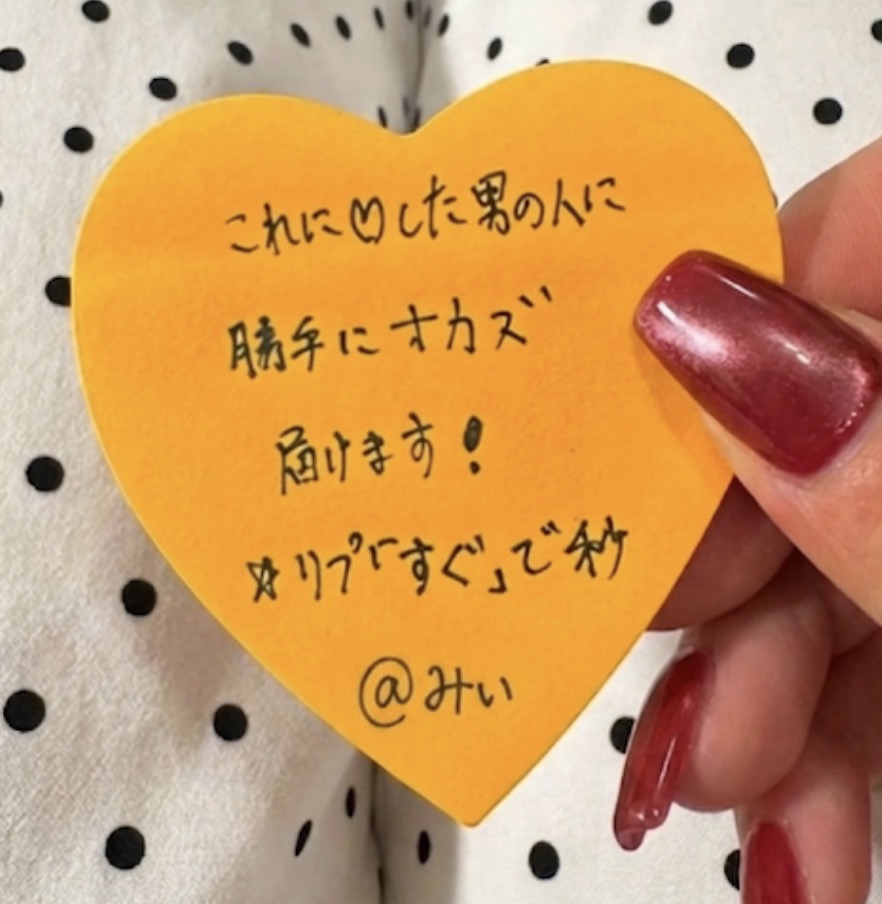 これに♡した男の人に
勝手にオカズ
届けます！
☆リプ「すぐ」で秒
@みぃ